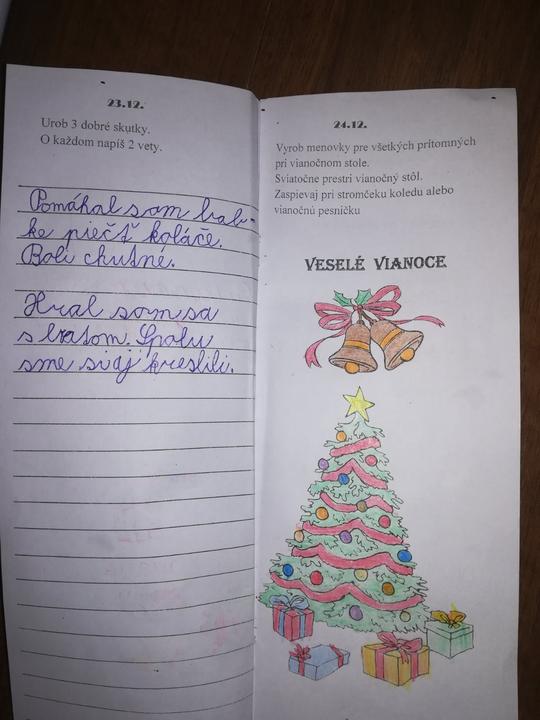 23.12.
Urob 3 dobré skutky.
O každom napíš 2 vety.
Pomáhal som bab-
ke piecť koláče.
Boli chutné.
Hral som sa
s bratom. Spolu
sme si aj kreslili.
24.12.
Vyrob menovky pre všetkých prítomných
pri vianočnom stole.
Sviatočne prestri vianočný stôl.
Zaspievaj pri stromčeku koledu alebo
vianočnú pesničku
VESELÉ VIANOCE